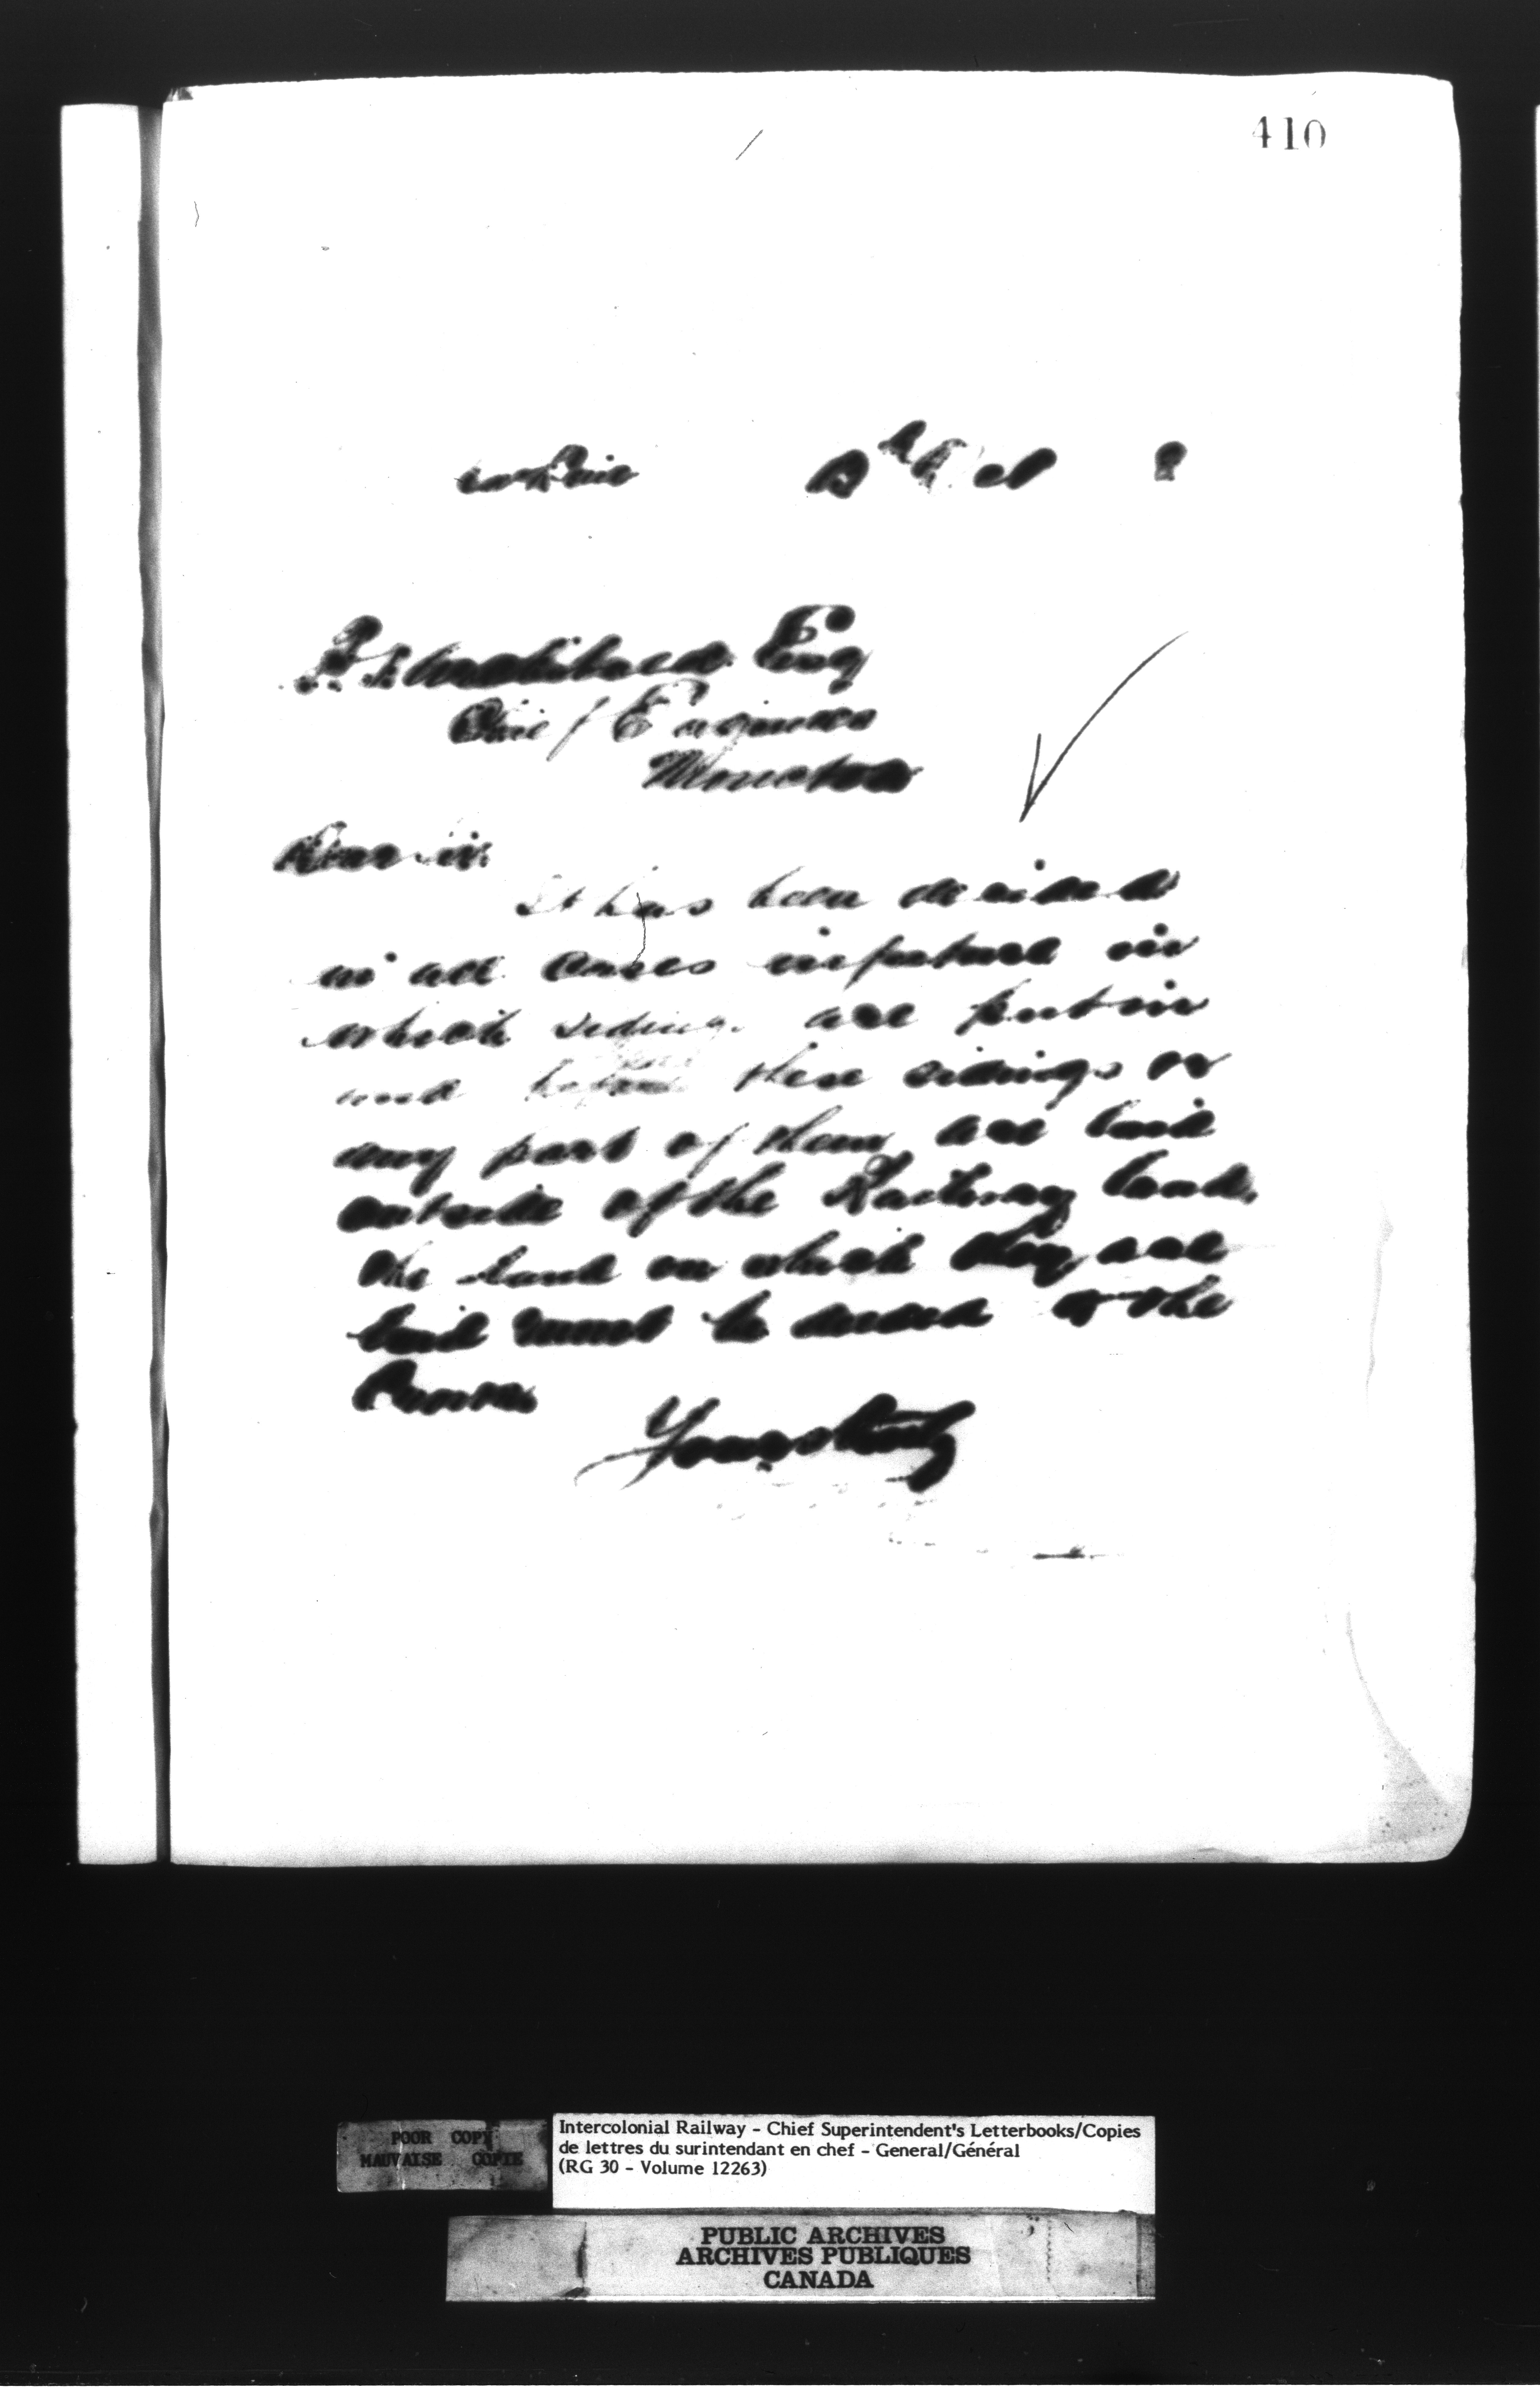 410
P. S. Archibald Esq
Chief Engineer
Moncton
Dear Sir
It has been decided
in all cases in future in
which sidings are put in
and before these sidings or
any part of them are laid
outside of the Railway land,
the land on which they are
laid must be deeded to the
Crown
Yours truly
POOR COPY
MAUVAISE COPIE
Intercolonial Railway - Chief Superintendent's Letterbooks/Copies
de lettres du surintendant en chef - General/Général
(RG 30 - Volume 12263)
PUBLIC ARCHIVES
ARCHIVES PUBLIQUES
CANADA